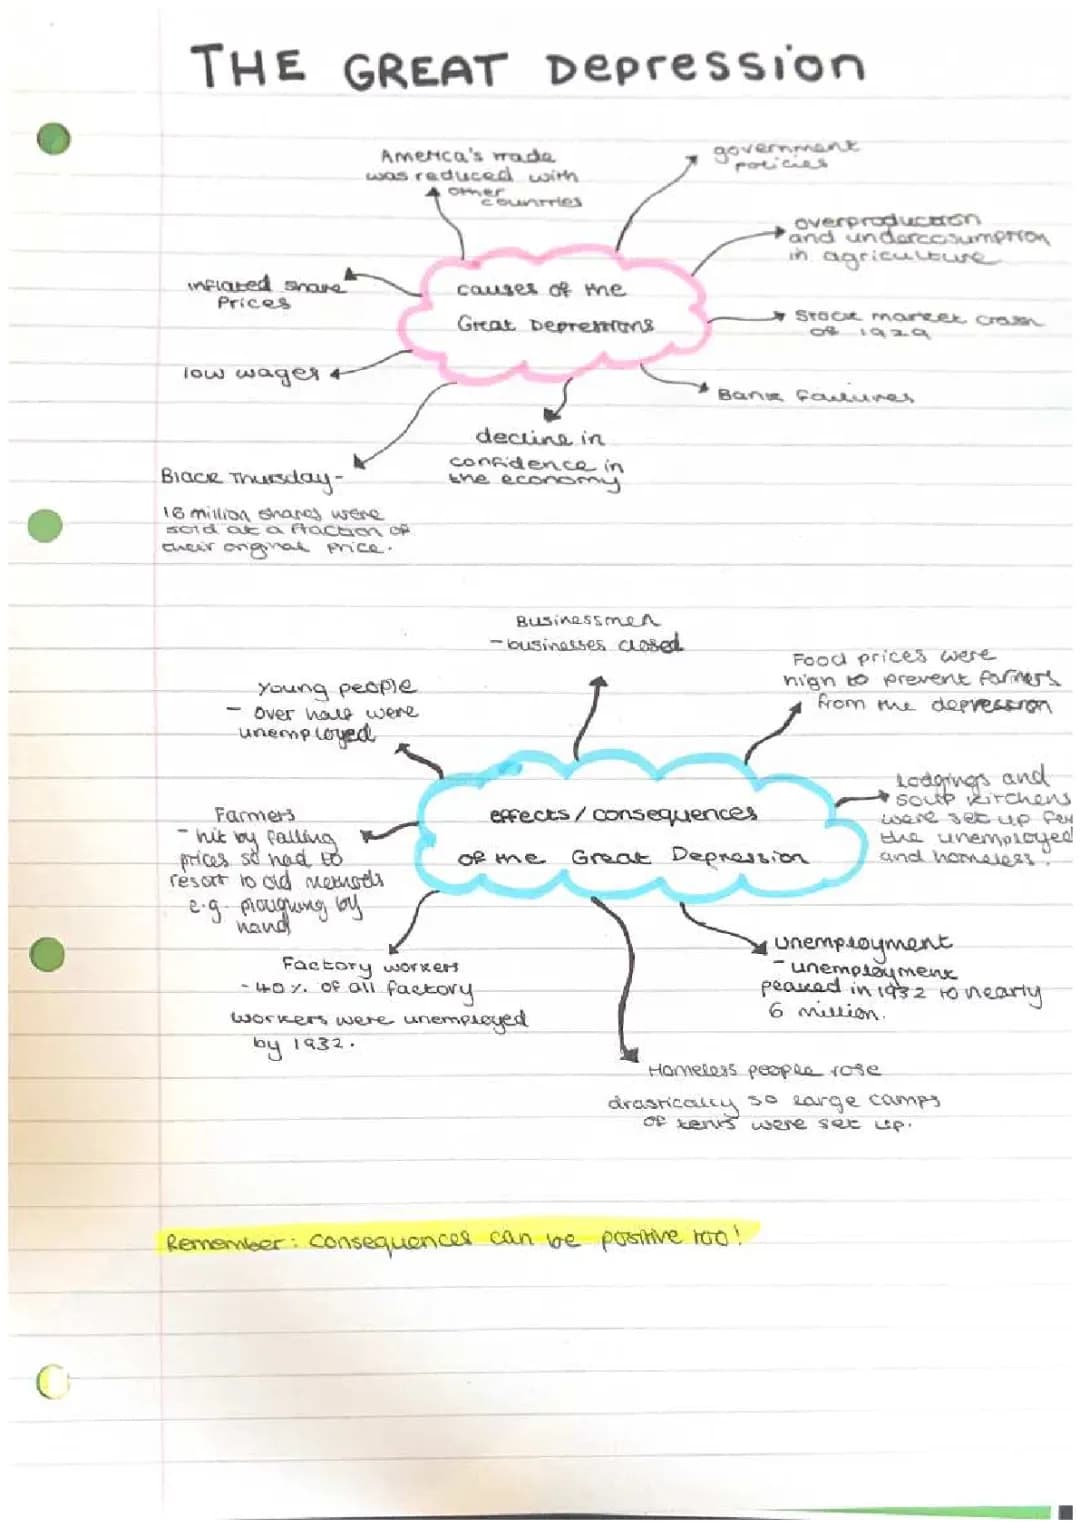 THE GREAT Depression
America's trade
was reduced with
other
countries
government
policies
overproduction
and undercosumption
in agriculture
inflated share
Prices
causes of the
Great Depressions
Stock market crash
of 1929
low wages
Bank failures
decline in
confidence in
the economy
Black Thursday-
16 million shares were
sold at a fraction of
their original price.
Businessmen
- businesses closed
Food prices were
high to prevent farmers
from the depression
Young people
- over half were
unemployed
Lodgings and
soup kitchens
were set up for
the unemployed
and homeless.
effects/consequences
of the Great Depression
Farmers
- hit by falling
prices so had to
resort to old methods
e.g. ploughing by
hand
Factory workers
- 40% of all factory
workers were unemployed
by 1932.
unemployment
- unemployment
peaked in 1932 to nearly
6 million.
Homeless people rose
drastically so large camps
of tents were set up.
Remember: consequences can be positive too!